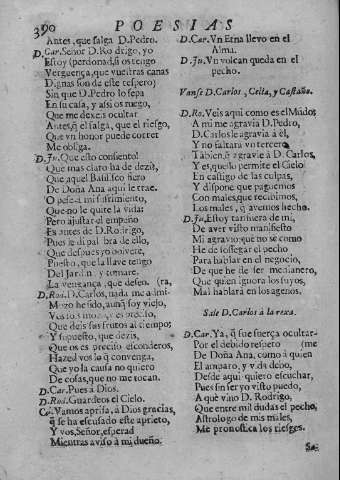 390 POESIAS
Antes, que salga D. Pedro.
D. Car. Señor D. Rodrigo, yo
Estoy (perdonad, si os tengo
Verguença, que vuestras canas
Dignas son de este respeto)
Sin que D. Pedro lo sepa
En su casa, y assi os ruego,
Que me dexeis ocultar
Antes, q̃ el salga, que el riesgo,
Que vn honor puede correr
Me obliga.
D. Ju. Que esto consiento!
Que mas claro ha de dezir,
Que aquel Basilisco fiero
De Doña Ana aqui le trae.
O pese a mi sufrimiento,
Que no le quite la vida;
Pero ajustar el empeño
Es antes de D. Rodrigo,
Pues le di palabra de ello,
Que despues yo bolveré,
Puesto, que la llave tengo
Del Jardin y tomaré
La vengança, que deseo.
D. Rod. D. Carlos, nada me admira,
Mozo he sido, aunq̃ soy viejo,
Vos sois mozo,
Que deis sus frutos al tiempo;
Y supuesto, que dezis,
Que os es preciso esconderos,
Hazed vos lo q̃ convenga,
Que yo la causa no quiero
De cosas, que no me tocan.
D. Car. Pues à Dios.
D. Rod. Guardeos el Cielo.
Ca. Vamos aprisa, à Dios gracias,
q̃ se ha escusado este aprieto,
Y vos, Señor, esperad
Mientras aviso à mi dueño.
D. Car. Vn Etna llevo en el
Alma.
D. Ju. Vn volcan queda en el
pecho.
Vanse D. Carlos, Celia, y Castaño.
D. Ro. Veis aqui como es el Mũdo;
A mi me agravia D. Pedro,
D. Carlos le agravia à él,
Y no faltara vn tercero
Tãbien, q̃ agravie à D. Carlos,
Y es, que lo permite el Cielo
En castigo de las culpas,
Y dispone que paguemos
Con males, que recibimos,
Los males, q̃ avemos hecho.
D. Ju. Estoy tan fuera de mi,
De aver visto manifiesto
Mi agravio que no sé como
He de sossegar el pecho
Para hablar en el negocio,
De que he de ser medianero,
Que quien ignora los suyos,
Mal hablará en los agenos.
Sale D. Carlos à la rexa.
D. Car. Ya, q̃ fue fuerça ocultar-
Por el debido respeto (me
De Doña Ana, como à quien
El amparo, y vida debo,
Desde aqui quiero escuchar,
Pues sin ser yo visto puedo,
A qué vino D. Rodrigo,
Que entre mil dudas el pecho,
Astrologo de mis males,
Me pronostica los riesgos.